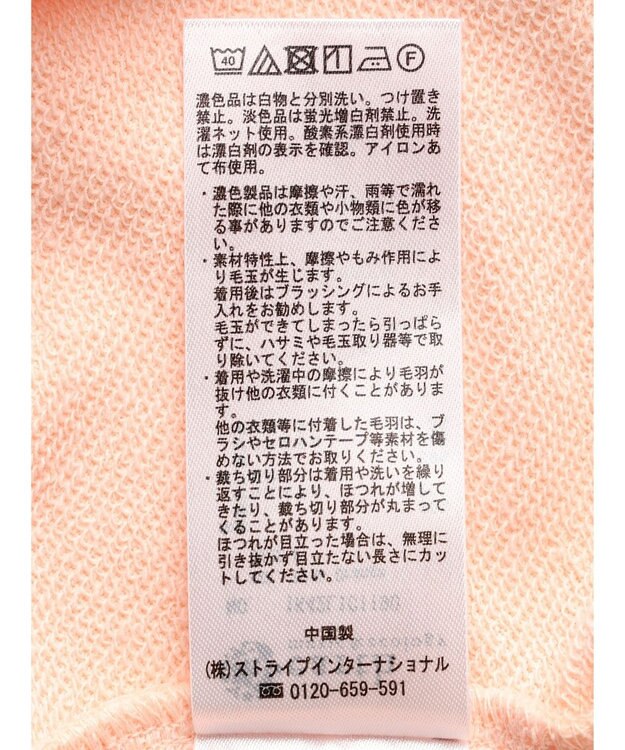 40 F
濃色品は白物と分別洗い。つけ置き
禁止。淡色品は蛍光増白剤禁止。洗
濯ネット使用。酸素系漂白剤使用時
は漂白剤の表示を確認。アイロンあ
て布使用。
・濃色製品は摩擦や汗、雨等で濡れ
た際に他の衣類や小物類に色が移
る事がありますのでご注意くださ
い。
・素材特性上、摩擦やもみ作用によ
り毛玉が生じます。
着用後はブラッシングによるお手
入れをお勧めします。
毛玉ができてしまったら引っぱら
ずに、ハサミや毛玉取り器等で取
り除いてください。
・着用や洗濯中の摩擦により毛羽が
抜け他の衣類に付くことがありま
す。
他の衣類等に付着した毛羽は、ブ
ラシやセロハンテープ等素材を傷
めない方法でお取りください。
・裁ち切り部分は着用や洗いを繰り
返すことにより、ほつれが増して
きたり、裁ち切り部分が丸まって
くることがあります。
ほつれが目立った場合は、無理に
引き抜かず目立たない長さにカッ
トしてください。
中国製
(株)ストライプインターナショナル
0120-659-591